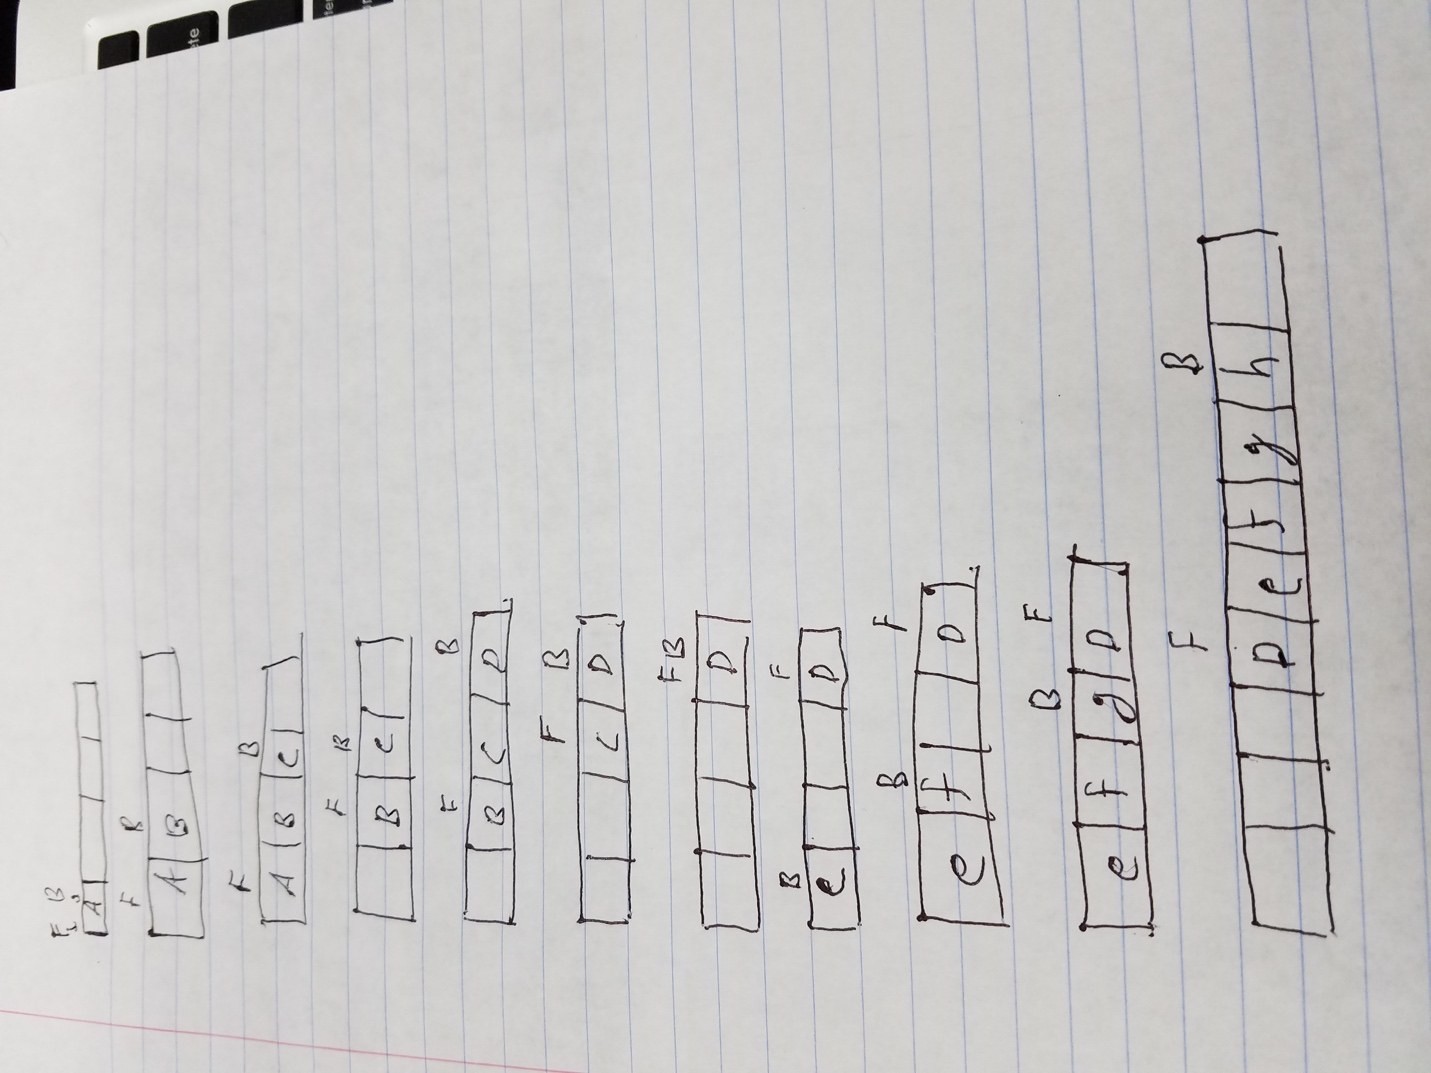 F B
A
F B
A B
F B
A B C
F B
B C
F B
B C D
F B
C D
F B
D
B F
e D
B F
e f D
B F
e f g D
F B
D e f g h